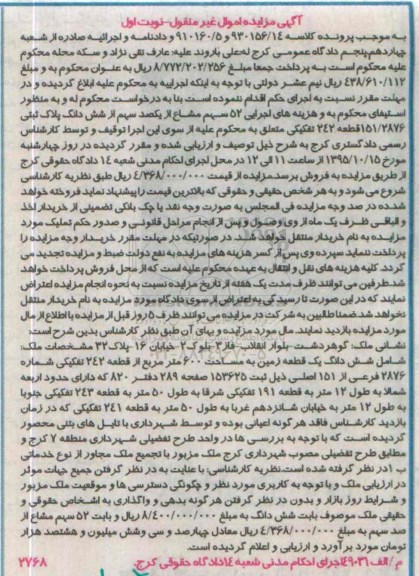 آگهی مزایده اموال غیر منقول-نوبت اول
به موجب پرونده کلاسه ۹۳۰۱۵۶/۱۴ و ۹۱۰۱۶۰/۵ و دادنامه و اجرائیه صادره از شعبه
چهاردهم،پنجم دادگاه عمومی کرج له:علی باروند علیه: عارف تقی نژاد و سکه محله محکوم
علیه محکوم است به پرداخت جمعا مبلغ ۸/۷۷۲/۲۰۲/۲۵۶ ریال به عنوان محکوم به و مبلغ
۴۳۸/۶۱۰/۱۱۲ ریال نیم عشر دولتی با توجه به اینکه اجراییه به محکوم علیه ابلاغ گردیده و در
مهلت مقرر نسبت به اجرای حکم اقدام ننموده است بنا به درخواست محکوم له و به منظور
استیفای محکوم به و هزینه های اجرایی ۵۲ سهم مشاع از یکصد سهم از شش دانگ پلاک ثبتی
۱۵۱/۲۸۷۶ قطعه ۲۴۲ تفکیکی متعلق به محکوم علیه از سوی این اجرا توقیف و توسط کارشناس
رسمی دادگستری کرج به شرح ذیل توصیف و ارزیابی شده و مقرر گردیده در روز چهارشنبه
مورخ ۱۳۹۵/۱۰/۱۵ از ساعت ۱۱ الی ۱۲ در محل اجرای احکام مدنی شعبه ۱۴ دادگاه حقوقی کرج
از طریق مزایده به فروش برسد.مزایده از قیمت ۴/۳۶۸/۰۰۰/۰۰۰ ریال طبق نظریه کارشناسی
شروع می شود و به هر شخص حقیقی و حقوقی که بالاترین قیمت را پیشنهاد نماید فروخته خواهد
شد،ده در صد وجه مزایده فی المجلس به صورت وجه نقد یا چک بانکی تضمینی از خریدار اخذ
و الباقی ظرف یک ماه از وی وصول و پس از انجام مراحل قانونی و صدور حکم تملیک مورد
مزایده به نام خریدار منتقل خواهد شد. در صورتیکه در مهلت مقرر خریدار وجه مزایده را
پرداخت ننماید سپرده وی پس از کسر هزینه های مزایده به نفع دولت ضبط و مزایده تجدید می
گردد. کلیه هزینه های نقل و انتقال به عهده محکوم علیه است که از محل فروش پرداخت خواهد
شد.طرفین می توانند ظرف مدت یک هفته از تاریخ مزایده نسبت به نحوه انجام مزایده اعتراض
نمایند که در این صورت تا رسیدگی به اعتراض از سوی دادگاه مورد مزایده به نام خریدار منتقل
نخواهد شد.ضمنا طالبین به شرکت در مزایده می توانند ظرف ۵ روز قبل از مزایده با اطلاع از مال
مورد مزایده بازدید نمایند. مال مورد مزایده و بهای آن طبق نظر کارشناس بدین شرح است:
نشانی ملک: گوهردشت- بلوار انقلاب- فاز۳ بلوک۲ خیابان ۱۶ پلاک۳۲ مشخصات ملک:
شامل شش دانگ یک قطعه زمین به مساحت ۶۰۰ متر مربع از قطعه ۲۴۲ تفکیکی شماره
۲۸۷۶ فرعی از ۱۵۱ اصلی ذیل ثبت ۱۵۳۶۲۵ صفحه ۲۸۹ دفتر ۸۲۰ که دارای حدود اربعه
شمالا به طول ۱۲ متر به قطعه ۱۹۱ تفکیکی شرقا به طول ۵۰ متر به قطعه ۲۴۳ تفکیکی جنوبا
به طول ۱۲ متر به خیابان شانزدهم غربا به طول ۵۰ متر به قطعه ۲۴۱ تفکیکی که در زمان
بازدید کارشناس فاقد هر گونه اعیانی بوده و توسط شهرداری با تابل های بتنی محصور
گردیده است که با توجه به بررسی ها در واحد طرح تفصیلی شهرداری منطقه ۷ کرج و
مطابق طرح تفصیلی مصوب شهرداری کرج ملک مزبور با تجمیع ملک مجاور از نوع خدماتی
ب ۱در نظر گرفته شده است.نظریه کارشناسی: با عنایت به در نظر گرفتن جمیع جهات موثر
در ارزیابی ملک و با توجه به کاربری مورد نظر و چگونگی دسترسی ها و موقعیت ملک مزبور
و شرایط روز بازار و بدون در نظر گرفتن هر گونه بدهی و واگذاری به اشخاص حقوقی و
حقیقی ملک موصوف بابت شش دانگ به مبلغ ۸/۴۰۰/۰۰۰/۰۰۰ ریال و بابت ۵۲ سهم مشاع از
صد سهم به مبلغ ۴/۳۶۸/۰۰۰/۰۰۰ ریال معادل چهارصد و سی وشش میلیون و هشتصد هزار
تومان مورد برآورد و ارزیابی و اعلام گردیده است.
م / الف ۱۴۹۰۳۱ اجرای احکام مدنی شعبه ۱۴دادگاه حقوقی کرج. ۲۷۶۸